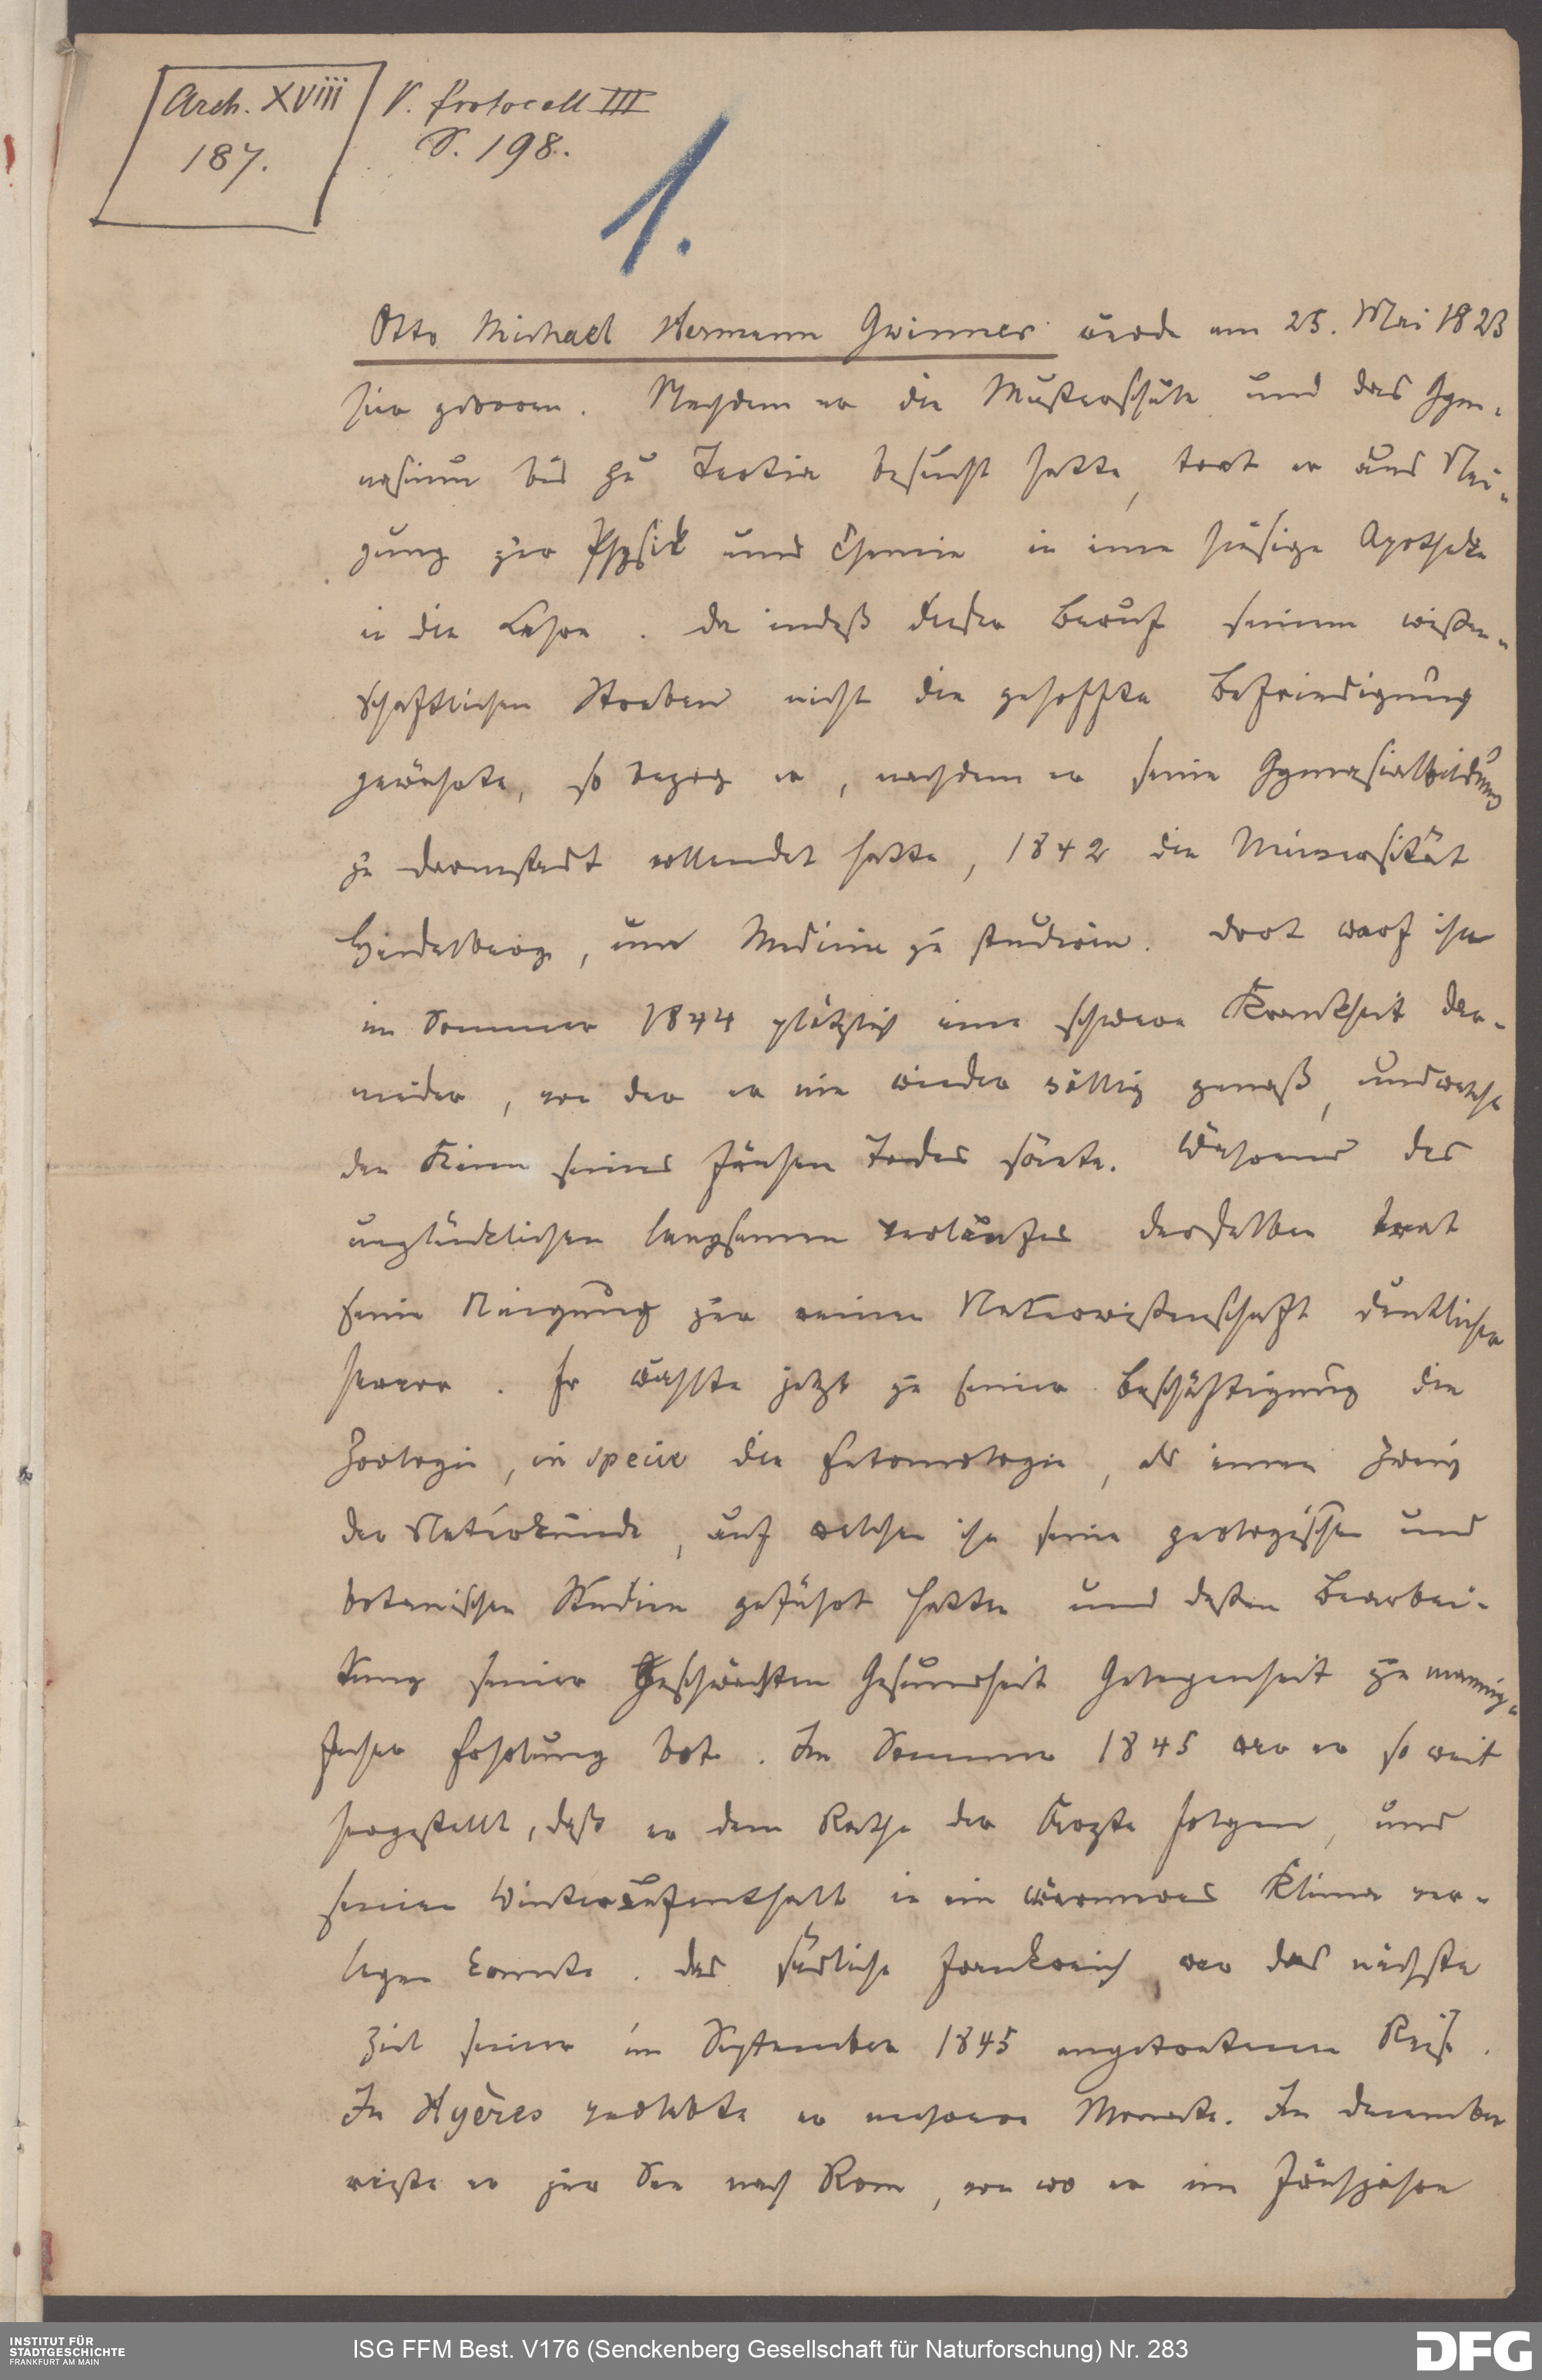 Arch. XVIII
187.
V. Protocoll III
S. 198.
1.
Otto Michael Hermann Gwinner wurde am 25. Mai 1823
hier geboren. Nachdem er die Musterschule und das Gym-
nasium bis zu Tertia besucht hatte, trat er aus Nei-
gung zur Physik und Chemie in eine hiesige Apotheke
in die Lehre. Da indeß dieser Beruf seinem wissen-
schaftlichen Streben nicht die gehoffte Befriedigung
gewährte, so bezog er, nachdem er seine Gymnasialbildung
zu Darmstadt vollendet hatte, 1842 die Universität
Heidelberg, um Medicin zu studiren. Dort warf ihn
im Sommer 1844 plötzlich eine schwere Krankheit dar-
nieder, von der er nie wieder völlig genaß, und welche
den Keim seines frühen Todes säete. Während des
unglücklichen langsamen Verlaufes derselben trat
seine Neigung zur reinen Naturwissenschaft deutlicher
hervor. Er wählte jetzt zu seiner Beschäftigung die
Zoologie, in specie die Entomologie, als einen Zweig
der Naturkunde, auf welchen ihn seine geologischen und
botanischen Studien geführt hatten und dessen Bearbei-
tung seiner geschwächten Gesundheit Gelegenheit zu mannig-
facher Erholung bot. Im Sommer 1845 war er so weit
hergestellt, daß er dem Rathe der Ärzte folgen, und
seinen Winteraufenthalt in ein wärmeres Klima ver-
legen konnte. Das südliche Frankreich war das nächste
Ziel seiner im September 1845 angetretenen Reise.
In Hyères verlebte er mehrere Monate. Im December
reiste er zur See nach Rom, von wo er im Frühjahre
INSTITUT FÜR
STADTGESCHICHTE
FRANKFURT AM MAIN
ISG FFM Best. V176 (Senckenberg Gesellschaft für Naturforschung) Nr. 283
DFG